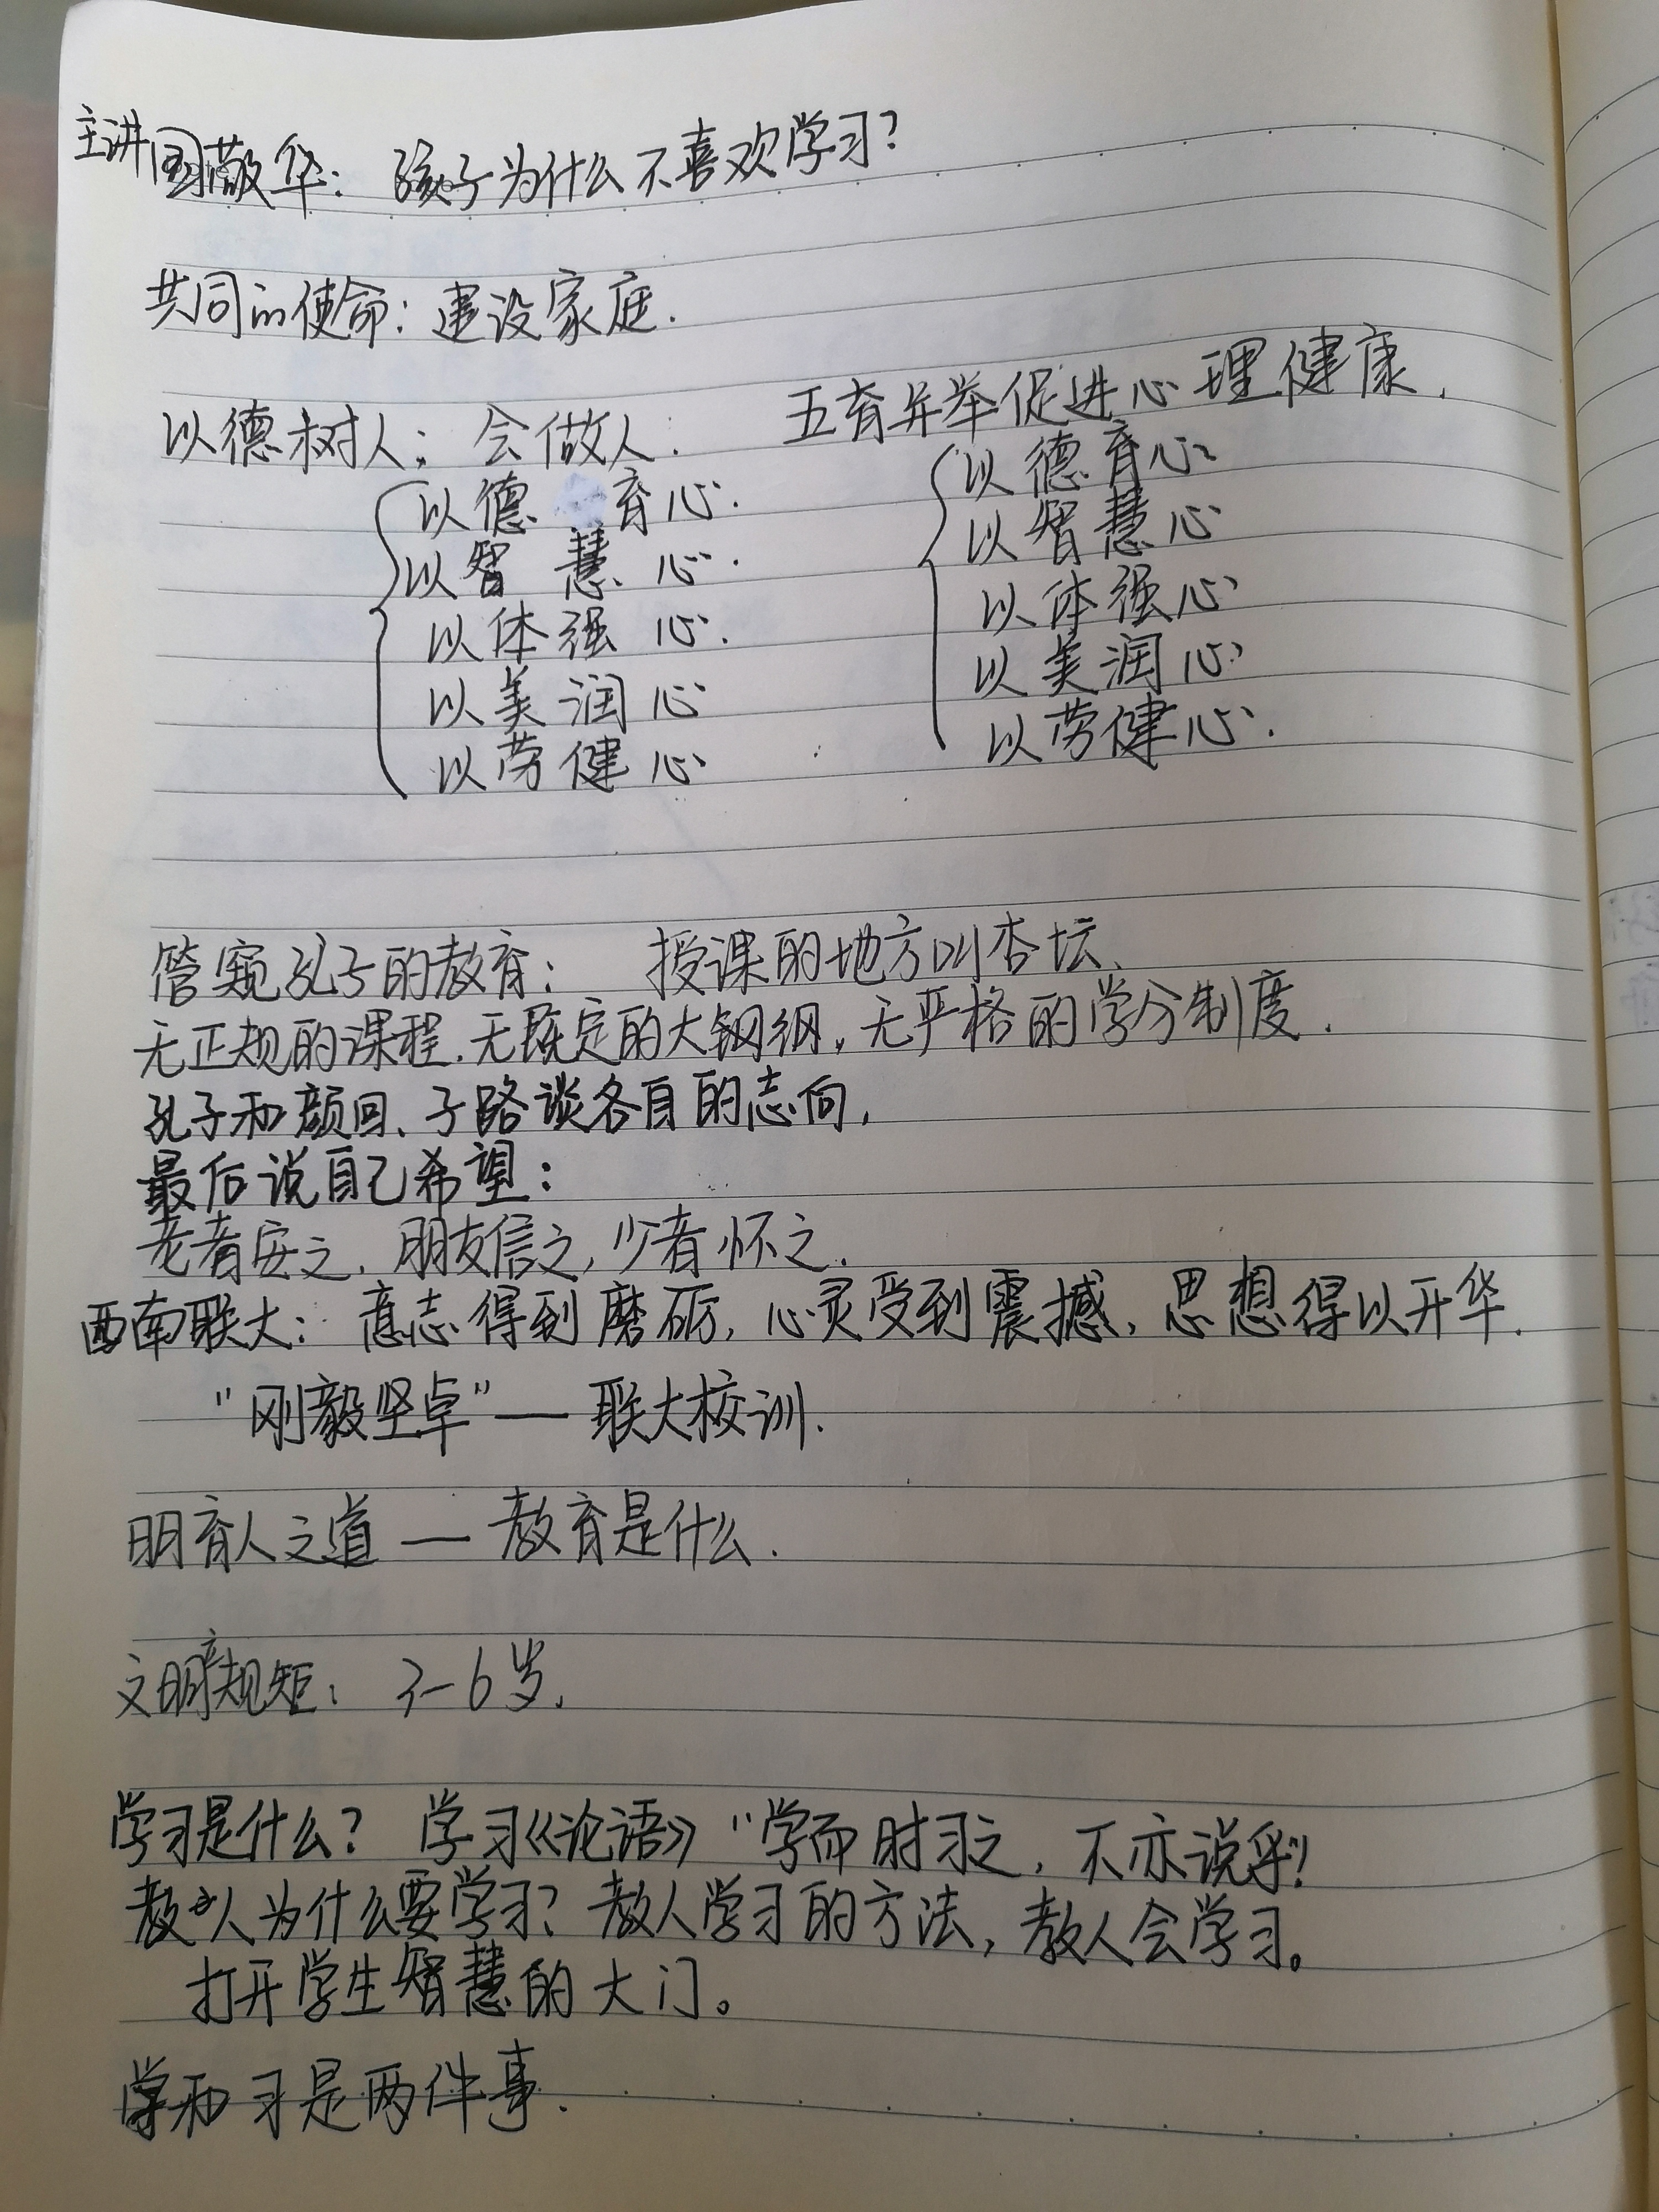 主讲国敬华：孩子为什么不喜欢学习？
共同的使命：建设家庭.
以德树人：会做人.
以德育心.
以智慧心.
以体强心.
以美润心
以劳健心
五育并举促进心理健康.
以德育心
以智慧心
以体强心
以美润心
以劳健心.
管窥孔子的教育： 授课的地方叫杏坛、
无正规的课程.无既定的大钢纲，无严格的学分制度.
孔子和颜回、子路谈各自的志向，
最后说自己希望：
老者安之，朋友信之，少者怀之.
西南联大：意志得到磨砺，心灵受到震撼，思想得以开华.
"刚毅坚卓"— 联大校训.
明育人之道 — 教育是什么.
文明规矩：3-6岁.
学习是什么？ 学习《论语》"学而时习之，不亦说乎！
教人为什么要学习？教人学习的方法，教人会学习。
打开学生智慧的大门。
学和习是两件事.